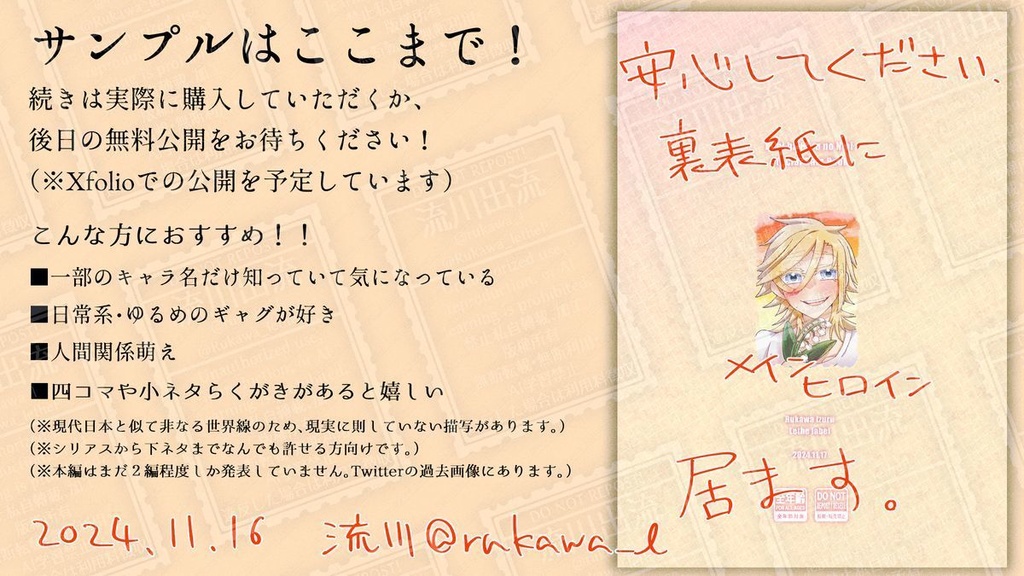 サンプルはここまで！
続きは実際に購入していただくか、
後日の無料公開をお待ちください！
（※Xfolioでの公開を予定しています）
こんな方におすすめ！！
■一部のキャラ名だけ知っていて気になっている
■日常系・ゆるめのギャグが好き
■人間関係萌え
■四コマや小ネタらくがきがあると嬉しい
（※現代日本と似て非なる世界線のため、現実に則していない描写があります。）
（※シリアスから下ネタまでなんでも許せる方向けです。）
（※本編はまだ２編程度しか発表していません。Twitterの過去画像にあります。）
2024.11.16 流川@rukawa_l
安心してください、
裏表紙に
メインヒロイン
居ます。
2024.11.17
DO NOT
流川出流